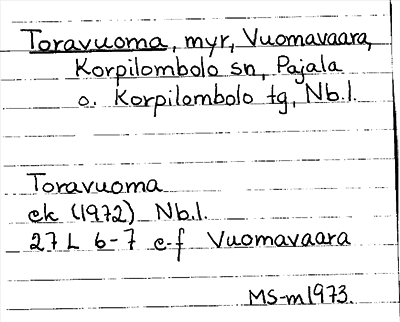 Toravuoma, myr, Vuomavaara,
Korpilombolo sn, Pajala
o. Korpilombolo tg, Nb.l.
Toravuoma
ek (1972) Nb.l.
27 L 6-7 e-f Vuomavaara
MS-m1973.